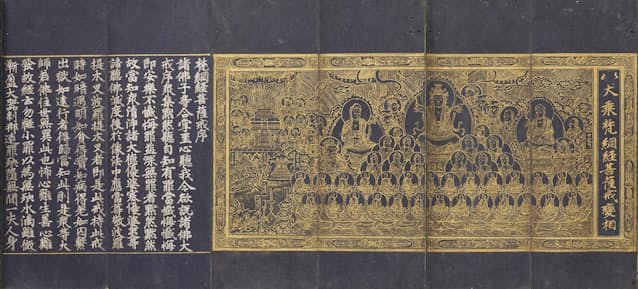 大乘梵網經菩薩戒變相
梵網經菩薩戒序
諸佛子等合掌至心聽我今欲說諸佛大
戒序衆集默然聽自知有罪當懺悔懺悔
即安樂不懺悔罪益深無罪者默然默然
故當知衆清淨諸大德優婆塞優婆夷等
諦聽佛滅度後於像法中應當尊敬波羅
提木叉波羅提木叉者即是此戒持此戒
時如暗遇明如貧得寶如病得差如囚繫
出獄如遠行者得歸當知此則是衆等大
師若佛住世無異此也怖心難生善心難
發故經云勿輕小罪以為無殃水滴雖微
漸盈大器剎那造罪殃墮無間一失人身